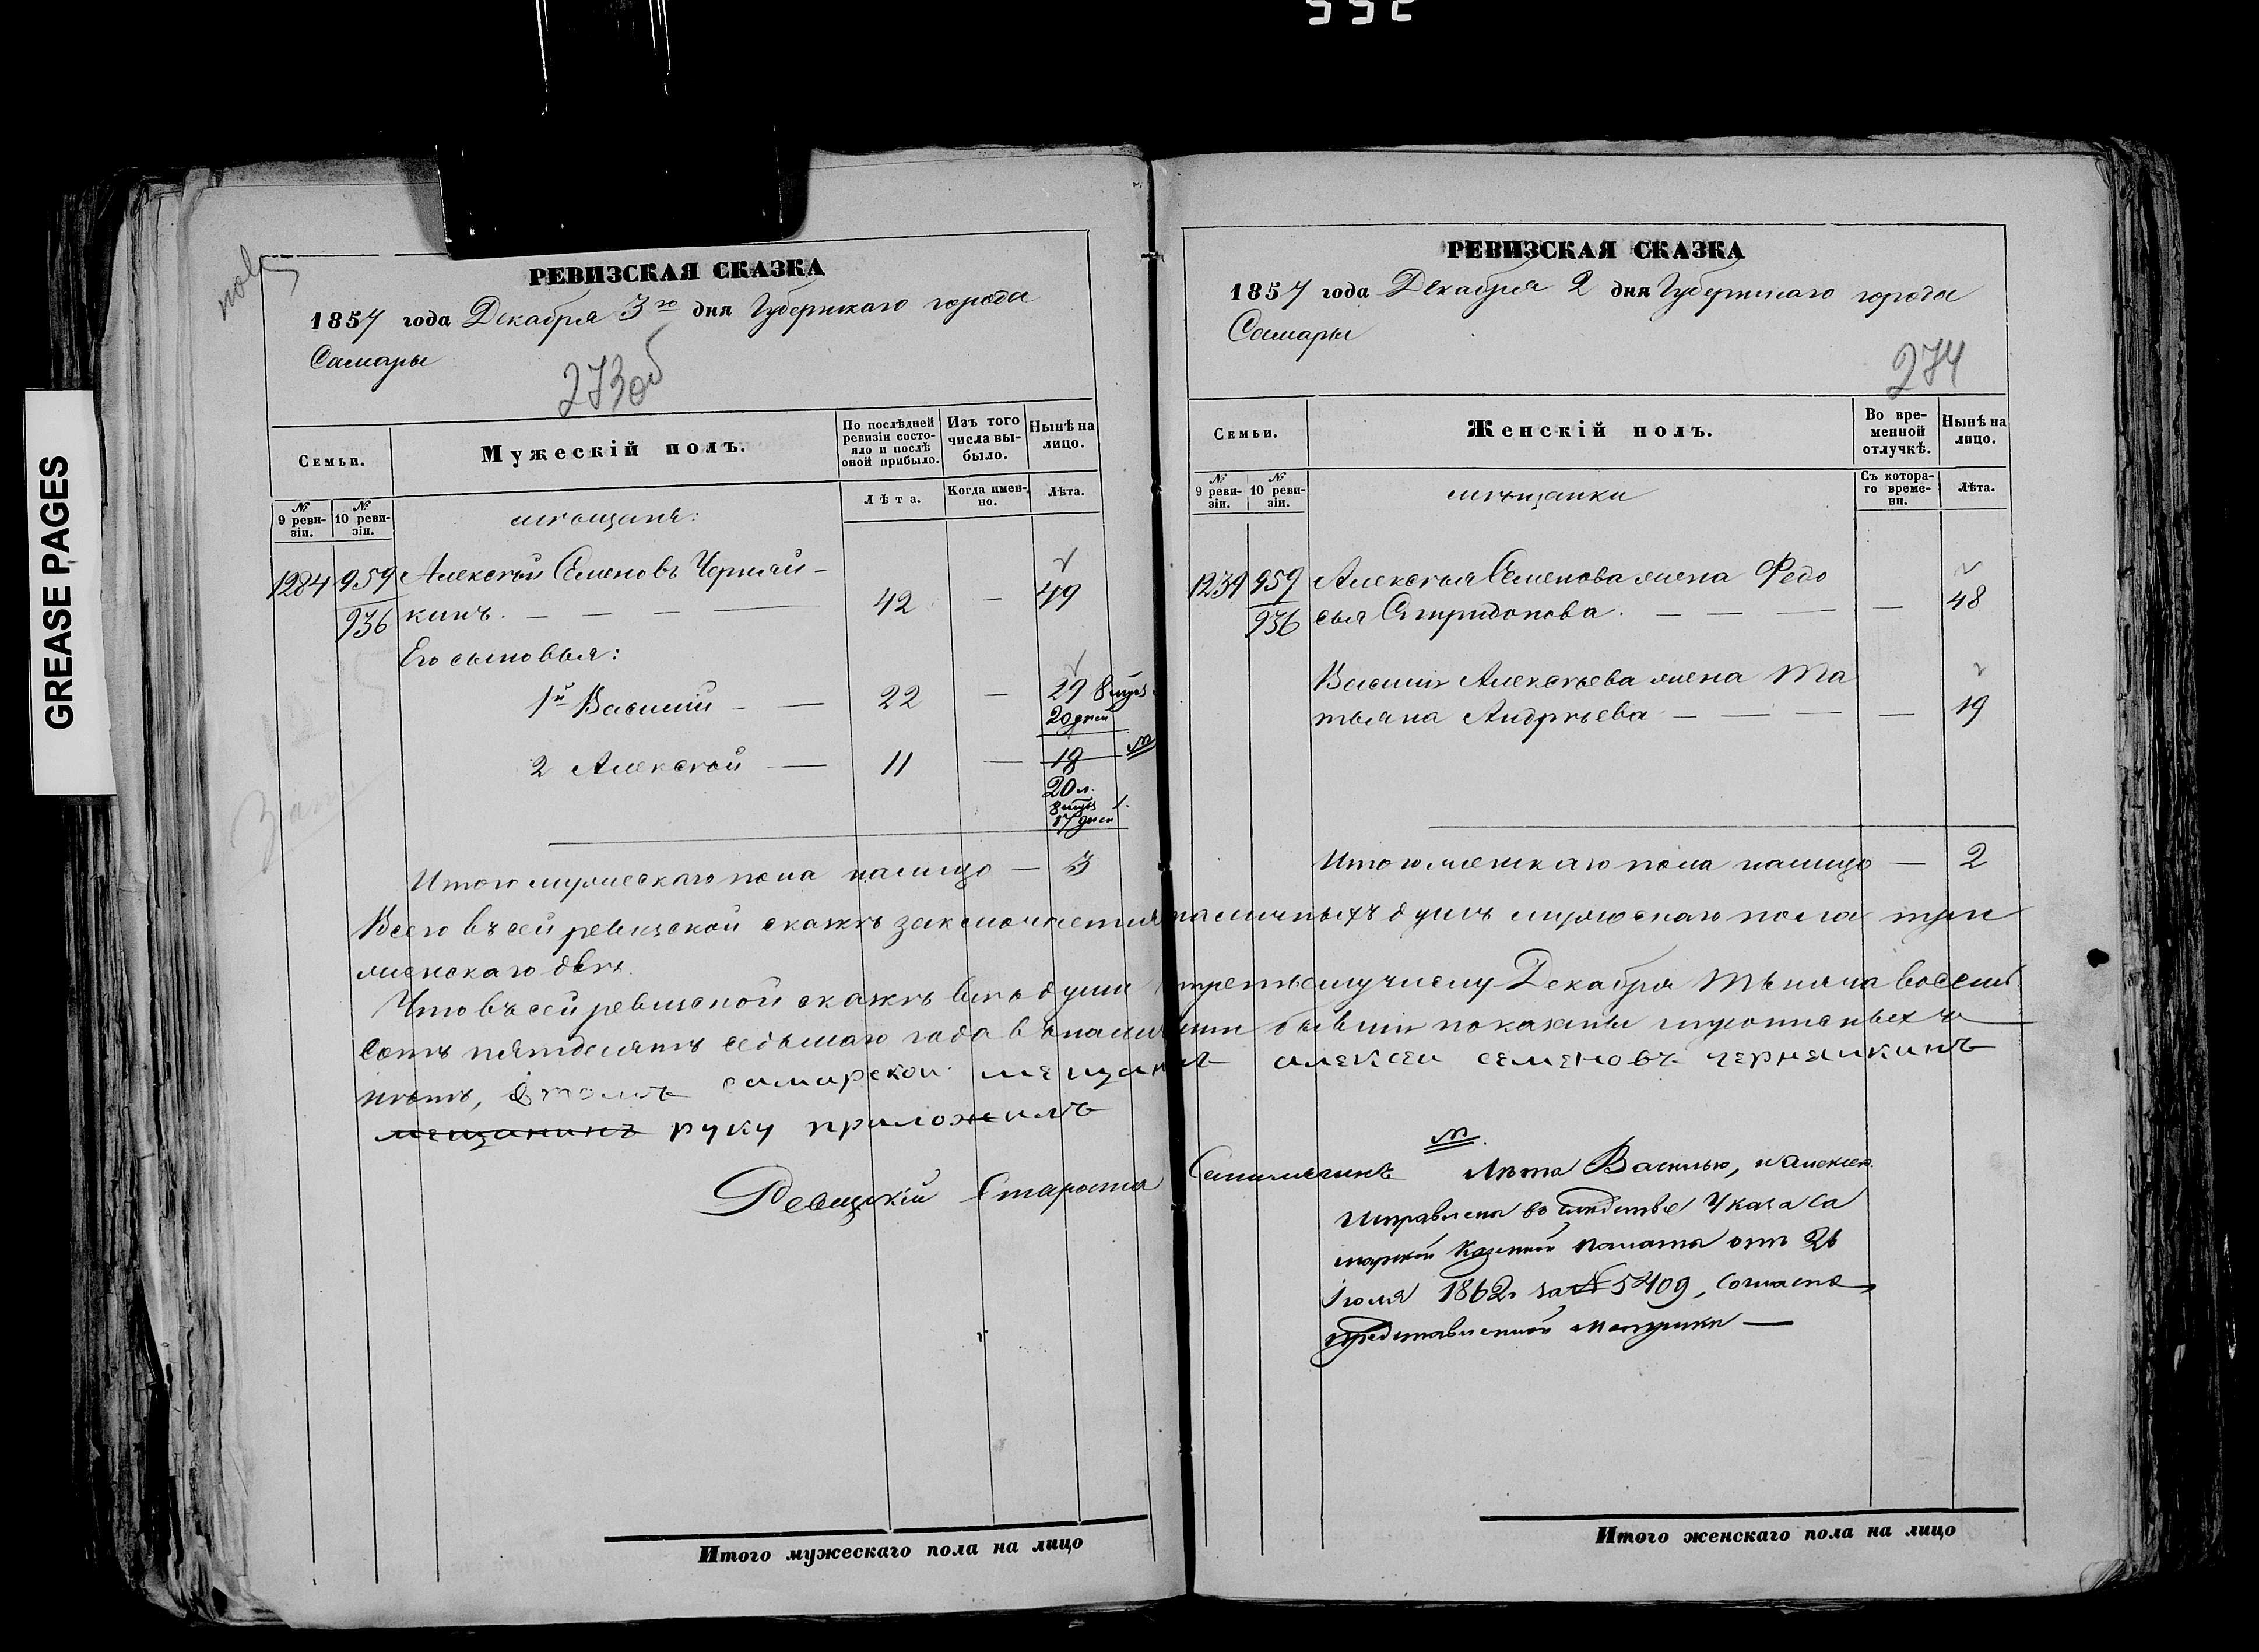 552
GREASE PAGES
РЕВИЗСКАЯ СКАЗКА
1857 года Декабря 3го дня Губернскаго города
Самары
273об
Семьи.
Мужескій полъ.
По послѣдней ревизіи состояло и послѣ оной прибыло.
Изъ того числа выбыло.
Нынѣ на лицо.
№ 9 ревизіи.
№ 10 ревизіи.
мѣщанѣ:
Лѣта.
Когда именно.
Лѣта.
1284 959 Алексѣй Семеновъ Черняй-
936 кинъ. — 42 — 49
Его сыновья:
1й Василий — 22 — 29 8 мцъ
20 дней
2 Алексѣй — 11 — 18
20 л.
8 мцъ
17 дней
Итого мужескаго пола налицо — 3
РЕВИЗСКАЯ СКАЗКА
1857 года Декабря 2 дня Губернскаго города
Самары
274
Семьи.
Женскій полъ.
Во временной отлучкѣ.
Нынѣ на лицо.
№ 9 ревизіи.
№ 10 ревизіи.
мѣщанки
Съ котораго времени.
Лѣта.
1239 959 Алексѣя Семенова жена Федо
936 сья Спиридонова. — 48
Василия Алексѣева жена Та
тьяна Андрѣева — 19
Итого женскаго пола налицо — 2
Всего въ сей ревизской сказкѣ заключается наличныхъ душъ мужескаго пола три
женскаго двѣ.
Что въ сей ревизской сказкѣ всѣ души третьему числу Декабря Тысяча восемь
сотъ пятдесятъ седьмаго года въ наличии бывшии показаны и прописныхъ
нѣтъ, въ томъ самарской мещанинъ алексеи семеновъ черняикинъ
мещанинъ руку приложилъ
Ревизкій Староста
Лѣта Василью, и Алексею
исправлены во слѣдствіе Указа Са
марской Казенной палаты отъ 26
Іюля 1862. за № 5409, согласно
представленной метрики —
Итого мужескаго пола на лицо
Итого женскаго пола на лицо